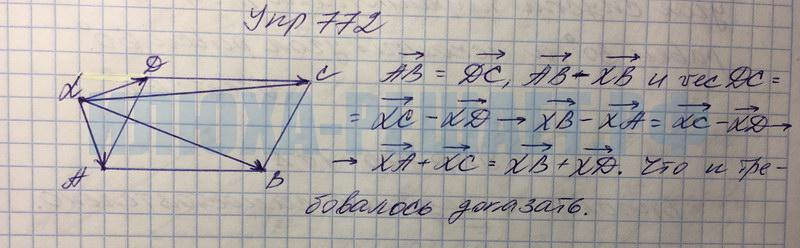 Упр 772
D
C
X
A
B
AB = DC, AB - XB и вес DC =
= XC - XD → XB - XA = XC - XD →
→ XA + XC = XB + XD. Что и тре-
бовалось доказать.